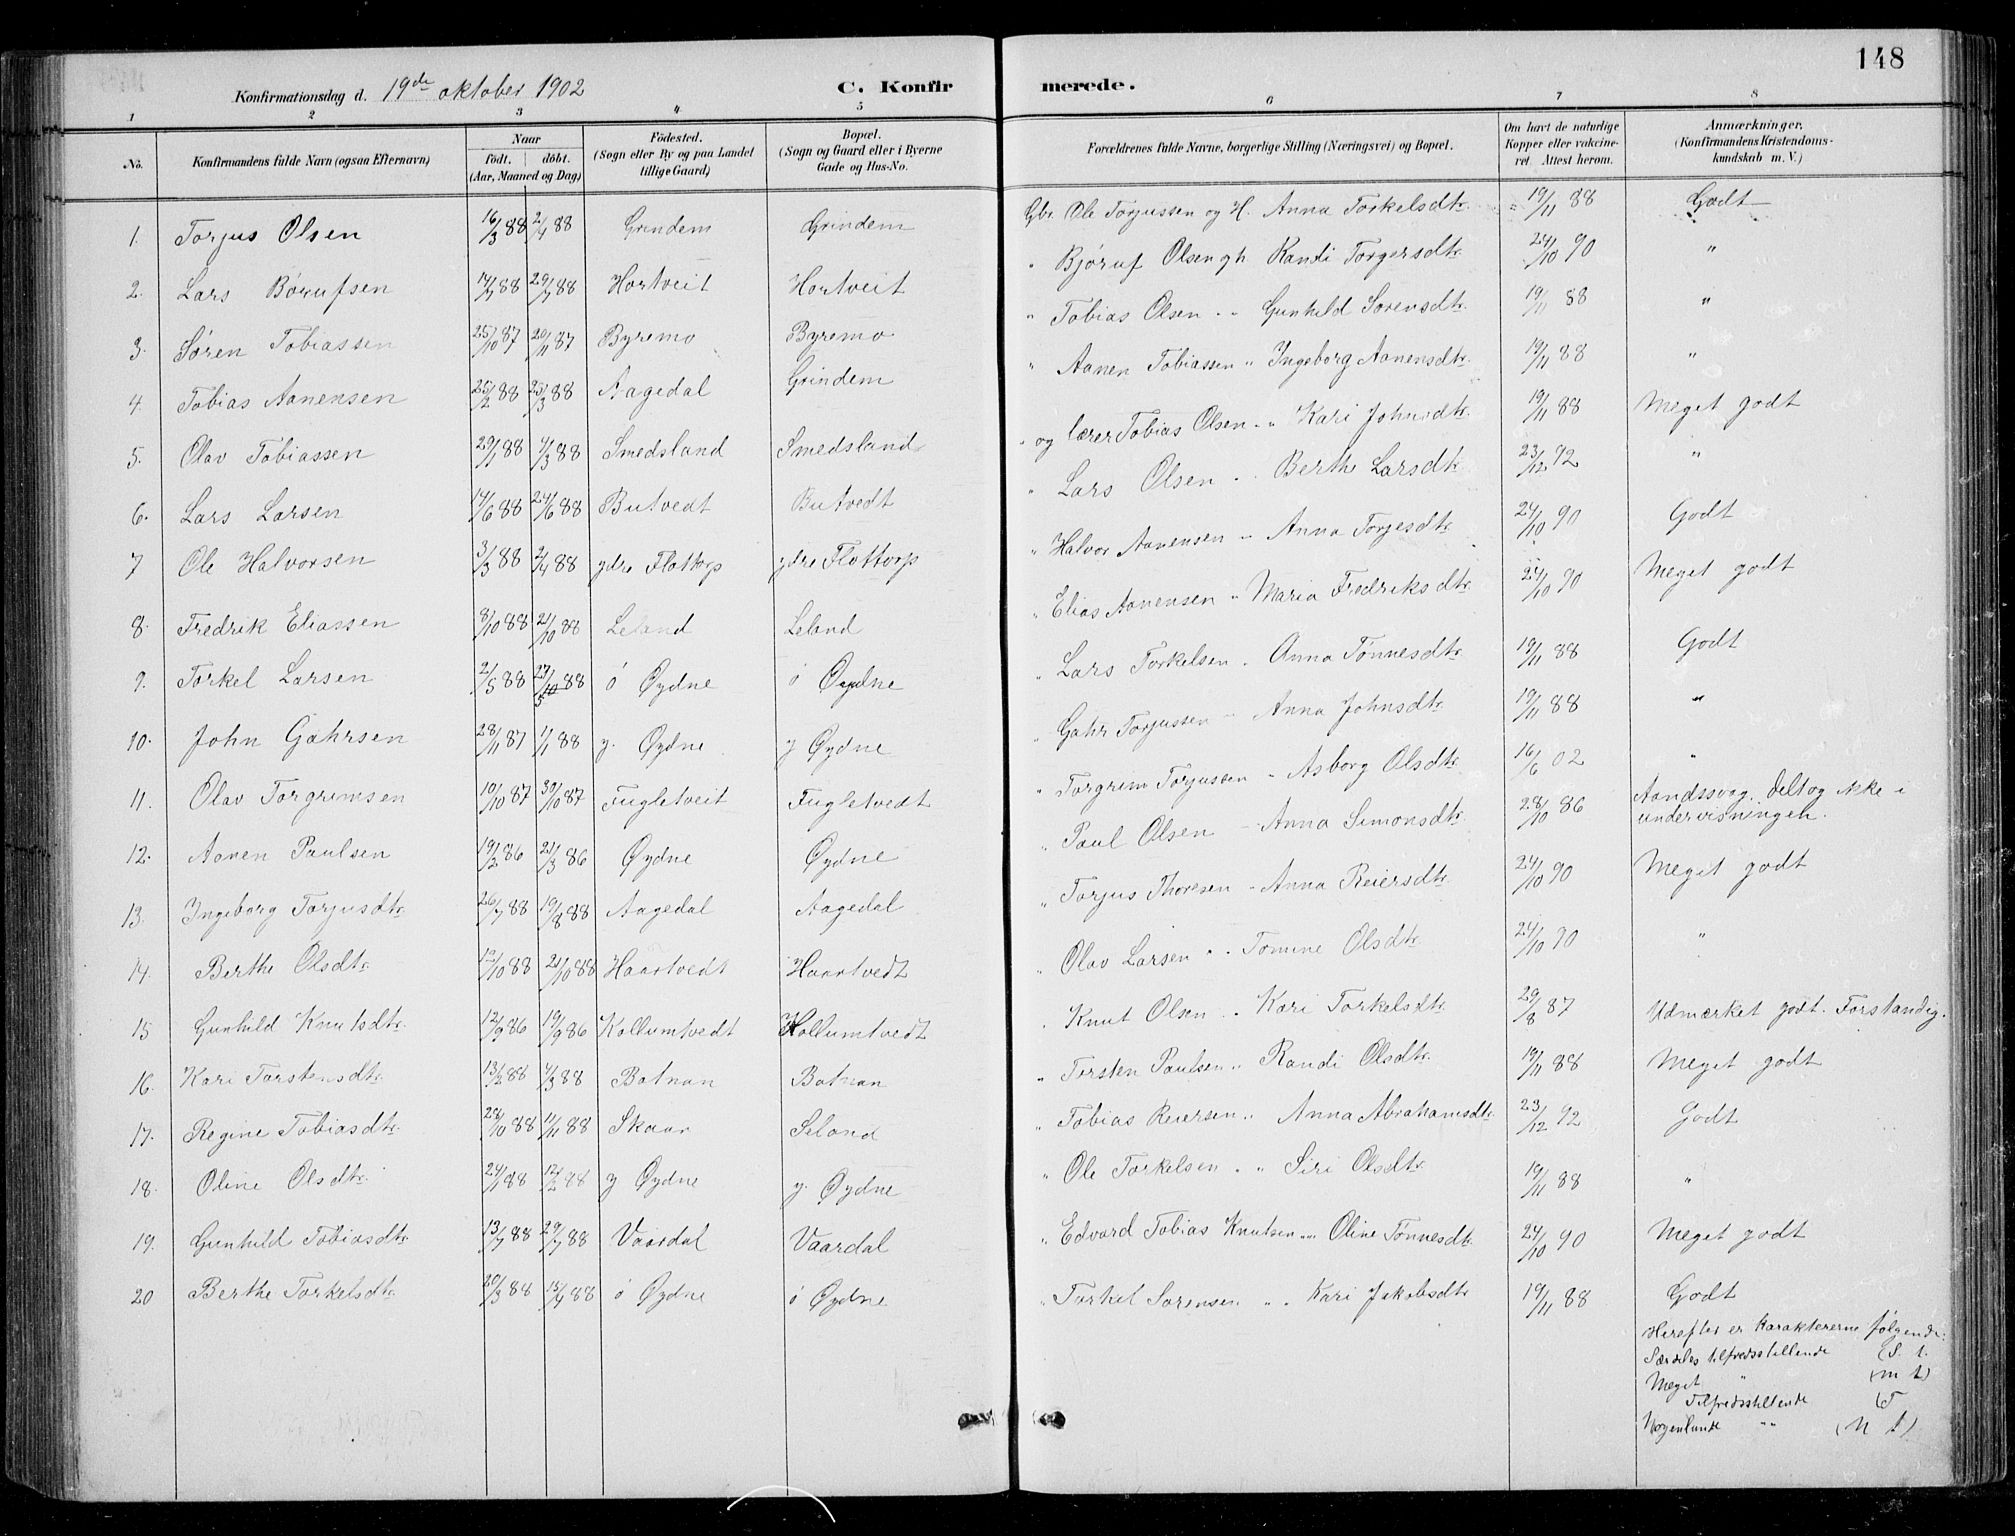 148
Konfirmationsdag d. 19de oktober 1902 C. Konfirmerede.
1 2 3 4 5 6 7 8
No. Konfirmandens fulde Navn (ogsaa Efternavn) Naar født. døbt. (Aar, Maaned og Dag) Fødested. (Sogn eller By og paa Landet tillige Gaard) Bopæl. (Sogn og Gaard eller i Byerne Gade og Hus-No. Forældrenes fulde Navne, borgerlige Stilling (Næringsvei) og Bopæl. Om havt de naturlige Kopper eller vaccineret. Attest herom. Anmærkninger. (Konfirmandens Kristendomskundskab m. V.)
1. Torjus Olsen 16/3 88 2/4 88 Grindem Grindem Gbr. Ole Torjussen og H. Anna Torkelsdtr. 19/11 88 Godt
2. Lars Børufsen 14/7 88 29/7 88 Hortveit Hortveit " Bjøruf Olsen gh. Randi Torgersdtr. 24/10 90 "
3. Søren Tobiassen 25/10 87 20/11 87 Byremo Byremo " Tobias Olsen " Gunhild Sørensdtr. 19/11 88 "
4. Tobias Aanensen 25/2 88 25/3 88 Aagedal Grindem " Aanen Tobiassen " Ingeborg Aanensdtr. 19/11 88 "
5. Olav Tobiassen 29/1 88 4/3 88 Smedsland Smedsland " og lærer Tobias Olsen " Kari Johnsdtr. 19/11 88 Meget godt
6. Lars Larsen 14/6 88 24/6 88 Butvedt Butvedt " Lars Olsen " Berthe Larsdtr. 23/12 92 "
7 Ole Halvorsen 3/3 88 2/4 88 ydre Flottorp ydre Flottorp " Halvor Aanensen " Anna Torjesdtr. 24/10 90 Godt
8. Fredrik Eliassen 8/10 88 21/10 88 Leland Leland " Elias Aanensen " Maria Fredriksdtr. 24/10 90 Meget godt
9. Torkel Larsen 2/5 88 27/10 88 5 ó Øydne ó Øydne " Lars Torkelsen " Anna Tønnesdtr. 19/11 88 Godt
10. John Gahrsen 28/11 87 1/1 88 y. Øydne y Øydne " Gahr Torjussen " Anna Johnsdtr. 19/11 88 "
11. Olav Torgrimsen 10/10 87 30/10 87 Fugletveit Fugletvedt " Torgrim Torjussen " Asborg Olsdtr. 16/6 02 "
12. Aanen Paulsen 19/2 86 21/3 86 Øydne Øydne " Paul Olsen " Anna Simonsdtr. 28/10 86 Aandssvag. Deltog ikke i undervisningen.
13. Ingeborg Torjusdtr. 26/7 88 19/8 88 Aagedal Aagedal " Torjus Thoresen " Anna Reiersdtr. 24/10 90 Meget godt
14. Berthe Olsdtr. 12/10 88 21/10 88 Haartvedt Haartvedt " Olav Larsen " Tomine Olsdtr. 24/10 90 "
15 Gunhild Knutsdtr. 12/9 86 19/9 86 Kollumtvedt Kollumtvedt " Knut Olsen " Kari Torkelsdtr. 29/8 87 Udmærket godt. Forstandig.
16. Kari Torstensdtr. 13/2 88 4/3 88 Botnan Botnan " Torsten Paulsen " Randi Olsdtr. 19/11 88 Meget godt
17. Regine Tobiasdtr. 28/10 88 11/11 88 Skaar Seland " Tobias Reiersen " Anna Abrahamsdtr. 23/12 92 Godt
18. Oline Olsdtr. 24/1 88 12/2 88 y Øydne y. Øydne " Ole Torkelsen " Siri Olsdtr. 19/11 88 "
19. Gunhild Tobiasdtr. 13/7 88 29/7 88 Vaardal Vaardal " Edvard Tobias Knutsen " Oline Tønnesdtr. 24/10 90 Meget godt
20 Berthe Torkelsdtr. 20/3 88 15/4 88 ó Øydne ó Øydne " Torkel Sørensen " Kari Jakobsdtr. 19/11 88 Godt
Herefter er karaktererne følgende:
Særdeles tilfredsstillende (S. t.
Meget " (m t)
Tilfredsstillende (T
Nogenlunde " (N t)